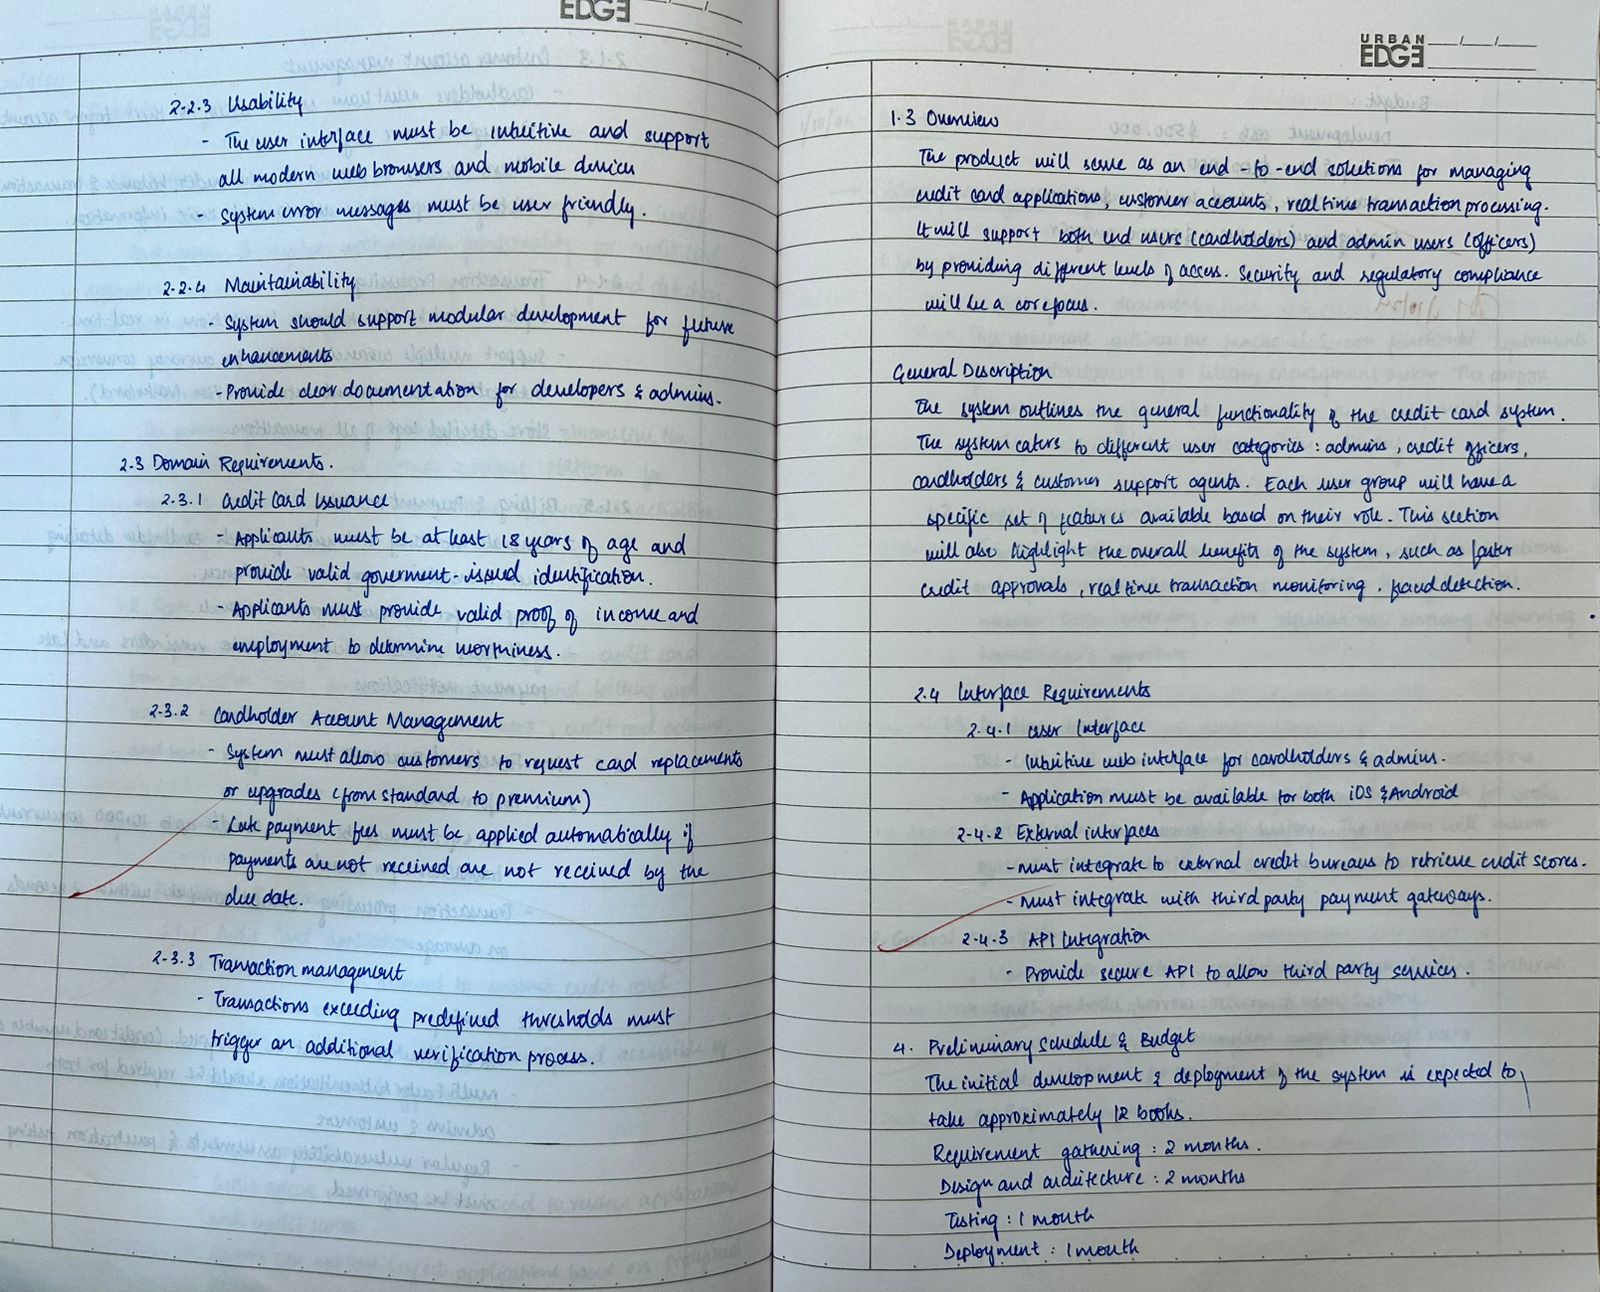 EDGE
2.2.3 Usability
- The user interface must be intuitive and support
all modern web browsers and mobile devices
- System error messages must be user friendly.
2.2.4 Maintainability
- System should support modular development for future
enhancements
- Provide clear documentation for developers & admins.
2.3 Domain Requirements.
2.3.1 Credit Card Issuance
- Applicants must be at least 18 years of age and
provide valid goverment-issued identification.
- Applicants must provide valid proof of income and
employment to determine worthiness.
2.3.2 Cardholder Account Management
- System must allow customers to request card replacements
or upgrades (from standard to premium)
- Late payment fees must be applied automatically if
payments are not received are not received by the
due date.
2.3.3 Transaction management
- Transactions exceeding predefined thresholds must
trigger an additional verification process.
URBAN
EDGE
1.3 Overview
The product will serve as an end-to-end solutions for managing
credit card applications, customer accounts, real time transaction processing.
It will support both end users (cardholders) and admin users (officers)
by providing different levels of access. Security and regulatory compliance
will be a core focus.
General Description
The system outlines the general functionality of the credit card system.
The system caters to different user categories : admins, credit officers,
cardholders & customer support agents. Each user group will have a
specific set of features available based on their role. This section
will also highlight the overall benefits of the system, such as faster
credit approvals, real time transaction monitoring, fraud detection.
2.4 Interface Requirements
2.4.1 User Interface
- Intuitive web interface for cardholders & admins.
- Application must be available for both iOS & Android
2.4.2 External interfaces
- must integrate to external credit bureaus to retrieve credit scores.
- must integrate with third party payment gateways.
2.4.3 API Integration
- Provide secure API to allow third party services.
4. Preliminary Schedule & Budget
The initial development & deployment of the system is expected to
take approximately 12 books.
Requirement gathering : 2 months.
Design and architecture : 2 months
Testing : 1 month
Deployment : 1 month